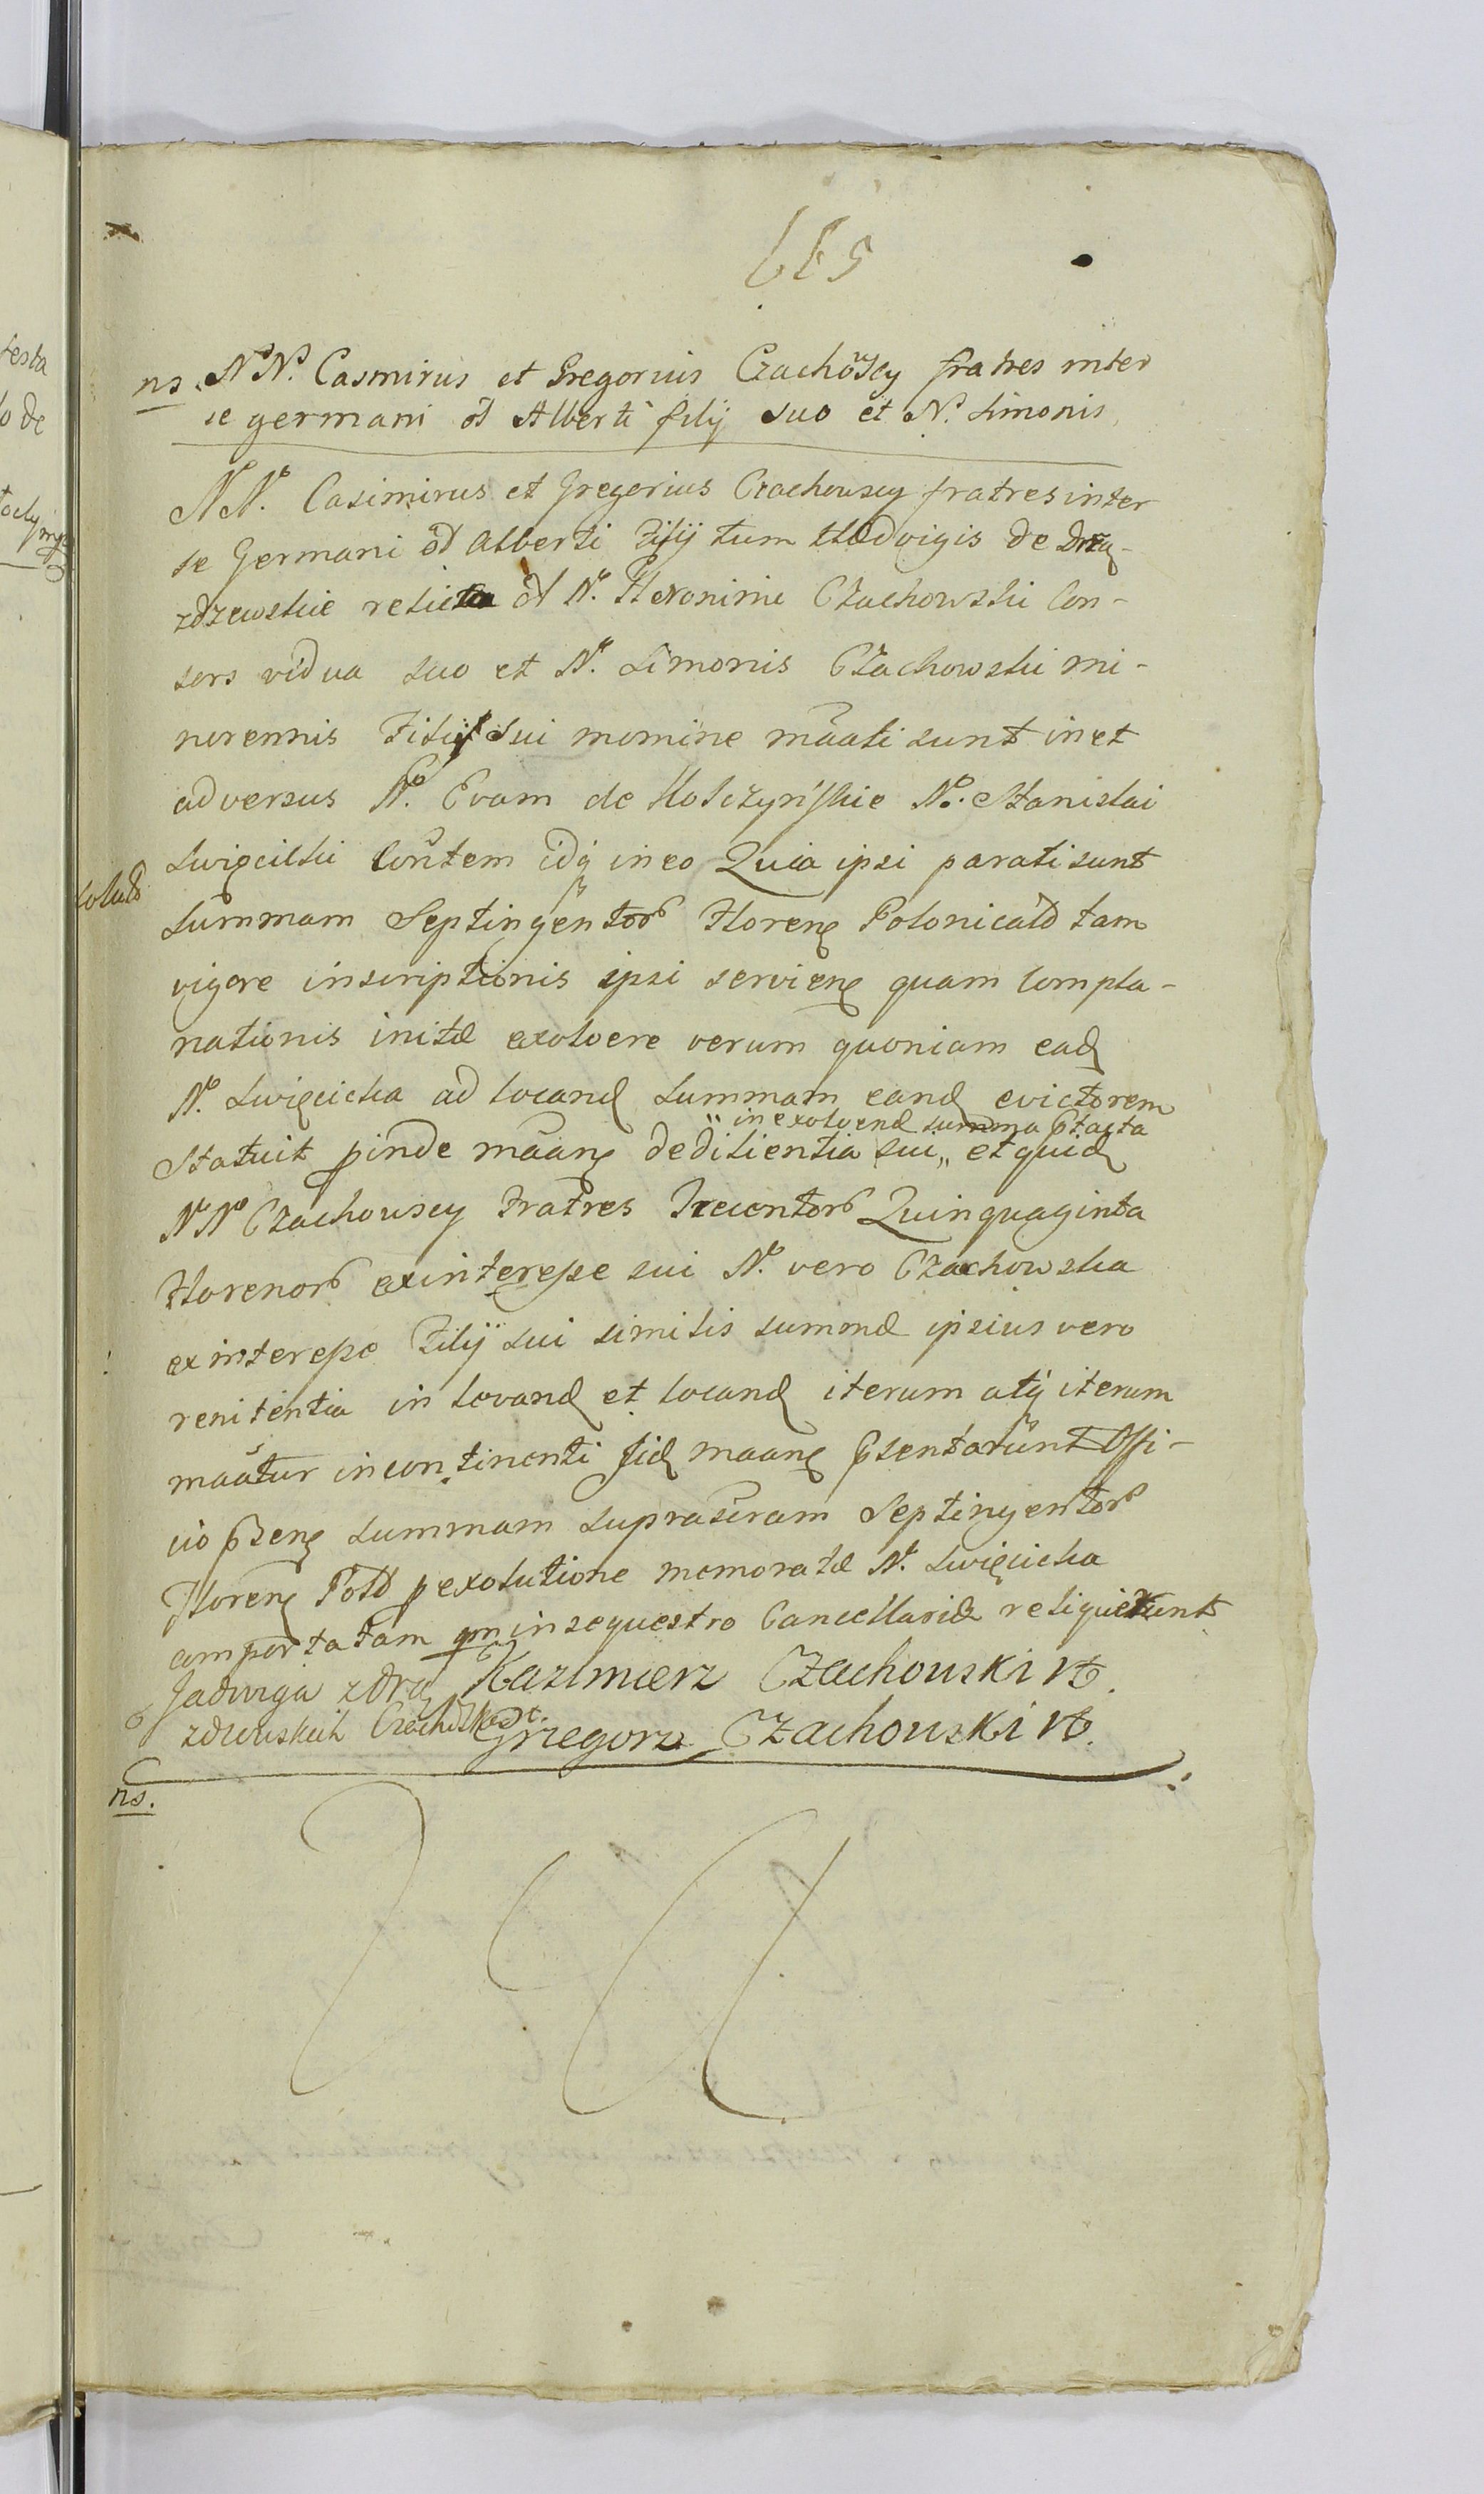 ns. NN. Casmirus et Gregorius Czachowscy fratres inter
se germani od Alberti filij suo et N. Simonis
NN. Casimirus et Gregorius Czachowscy fratres inter
se Germani od Alberti Filij tum Hedvigis de Drzą-
zdzewskie relicta od N. Heronimi Czachowski Con-
sors vidua suo et N. Simonis Czachowski mi-
norennis Filij sui nomine maati sunt in et
adversus N. Evam de Kolczyńskie N. Stanislai
Swięcicki Contem idq in eo Quia ipsi parati sunt
solut
Summam Septingentor Floren Polonical tam
vigore inscriptionis ipsi servien quam compla-
nationis initæ exolvere verum quoniam ead
N. Swięcicka ad locand Summam eand evictorem
in exolvend summa
Statuit pinde maan de sui et quid
NN Czachowscy Fratres Trecentor Quinquaginta
Florenor ex interesse sui N. vero Czachowska
ex interesse Filij sui similis summæ ipsius vero
renitentia in levand et locand iterum atq iterum
maatur in continenti fid maan psentarunt Offi-
cio psen summam supra Septingentor
Floren Poll p exolutione memoratæ N. Swięcicka
comportatam in sequestro Cancellariæ reliquerunt
Jadwiga zdrą Kazimierz Czachowski
Grzegorz Czachowski
ns.